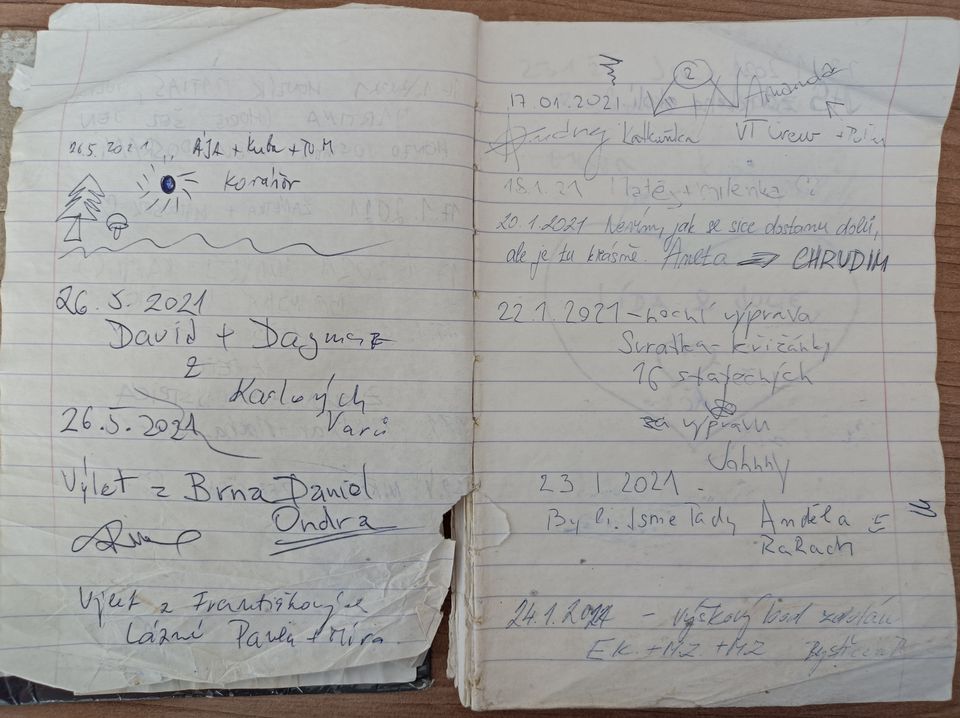 26.5.2021 ÁJA + Kuba + TOM
26.5.2021
David + Dagmar
z
Karlových
Varů
26.5.2021
Výlet z Brna Daniel
Ondra
Výlet z Františkových
Lázní Pavla + Míra
2
17.01.2021 Amanda
Katkuňka VT Crew
18.1.21 Matěj + Milenka
20.1.2021 Nevím, jak se sice dostanu dolů,
ale je tu krásně. Aneta CHRUDIM
22.1.2021 – noční výprava
Svratka - Křižánky
16 statečných
za výpravu
Johnny
23 1.2021 -
Byli jsme Tady Anděla
RaRach
24.1.2021 – výškový bod zdolán
EK. + MZ. + MZ